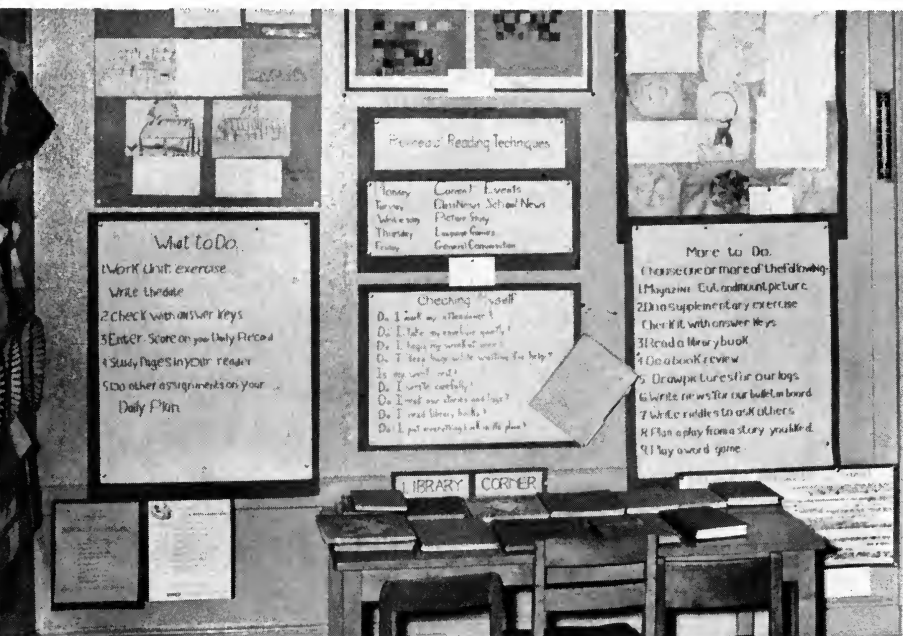 What to Do.
1. Work Unit exercise
Write the date
2. Check with answer keys
3. Enter Score on your Daily Record
4. Study Pages in your reader
5. Do other assignments on your
Daily Plan.
Reading Techniques
Monday Current Events
Tuesday Class News School News
Wednesday Picture Story
Thursday Language Games
Friday General Conversation
Checking Myself
Do I mark my attendance?
Do I take my envelope quietly?
Do I begin my work at once?
Do I keep busy while waiting for help?
Is my work neat?
Do I write carefully?
Do I read our stories and logs?
Do I read library books?
Do I put everything back in its place?
More to Do.
Choose one or more of the following-
1. Magazine Cut and mount picture
2. Do a supplementary exercise
Check it with answer keys
3. Read a library book
4. Do a book review
5. Draw pictures for our logs
6. Write news for our bulletin board
7. Write riddles to ask others
8. Plan a play from a story you liked.
9. Play a word game
LIBRARY CORNER